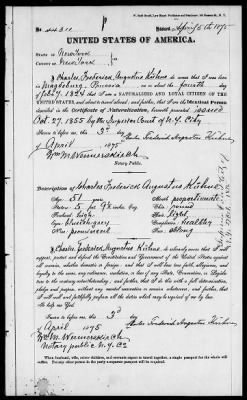 No. 44311
Issued April 5th 1875
UNITED STATES OF AMERICA.
STATE OF New York
COUNTY OF New York } ss.
I Charles Frederick Augustus Kühne do swear that I was born
in Magdeburg Prussia on or about the fourth day
of July 1824 that I am a NATURALIZED AND LOYAL CITIZEN OF THE
UNITED STATES, and about to travel abroad; and further, that I am the Identical Person
described in the Certificate of Naturalization, herewith presented issued
Oct. 27, 1855 by the Superior Court of N.Y. City
Sworn to before me, this 3d day
of April 1875
Notary Public.
Description of Charles Frederick Augustus Kühne
Age: 51 years
Mouth: proportionate
Stature: 5 ft 9
Chin: round
Forehead: high
Hair: light
Eyes: bluish grey
Complexion: healthy
Nose: prominent
Face: oblong
I Charles Frederick Augustus Kühne do solemnly swear that I will
support, protect and defend the Constitution and Government of the United States against
all enemies, whether domestic or foreign; and that I will bear true faith, allegiance, and
loyalty to the same, any ordinance, resolution, or law of any State, Convention, or Legisla-
ture to the contrary notwithstanding; and further, that I do this with a full determination,
pledge and purpose, without any mental reservation or evasion whatsoever; and further, that
I will well and faithfully perform all the duties which may be required of me by law.
So help me God.
Sworn to before me, this 3d day
of April 1875
Notary public N.Y. Co
When husband, wife, minor children, and servants expect to travel together, a single passport for the whole will
suffice. For any other person in the party a separate passport will be required.